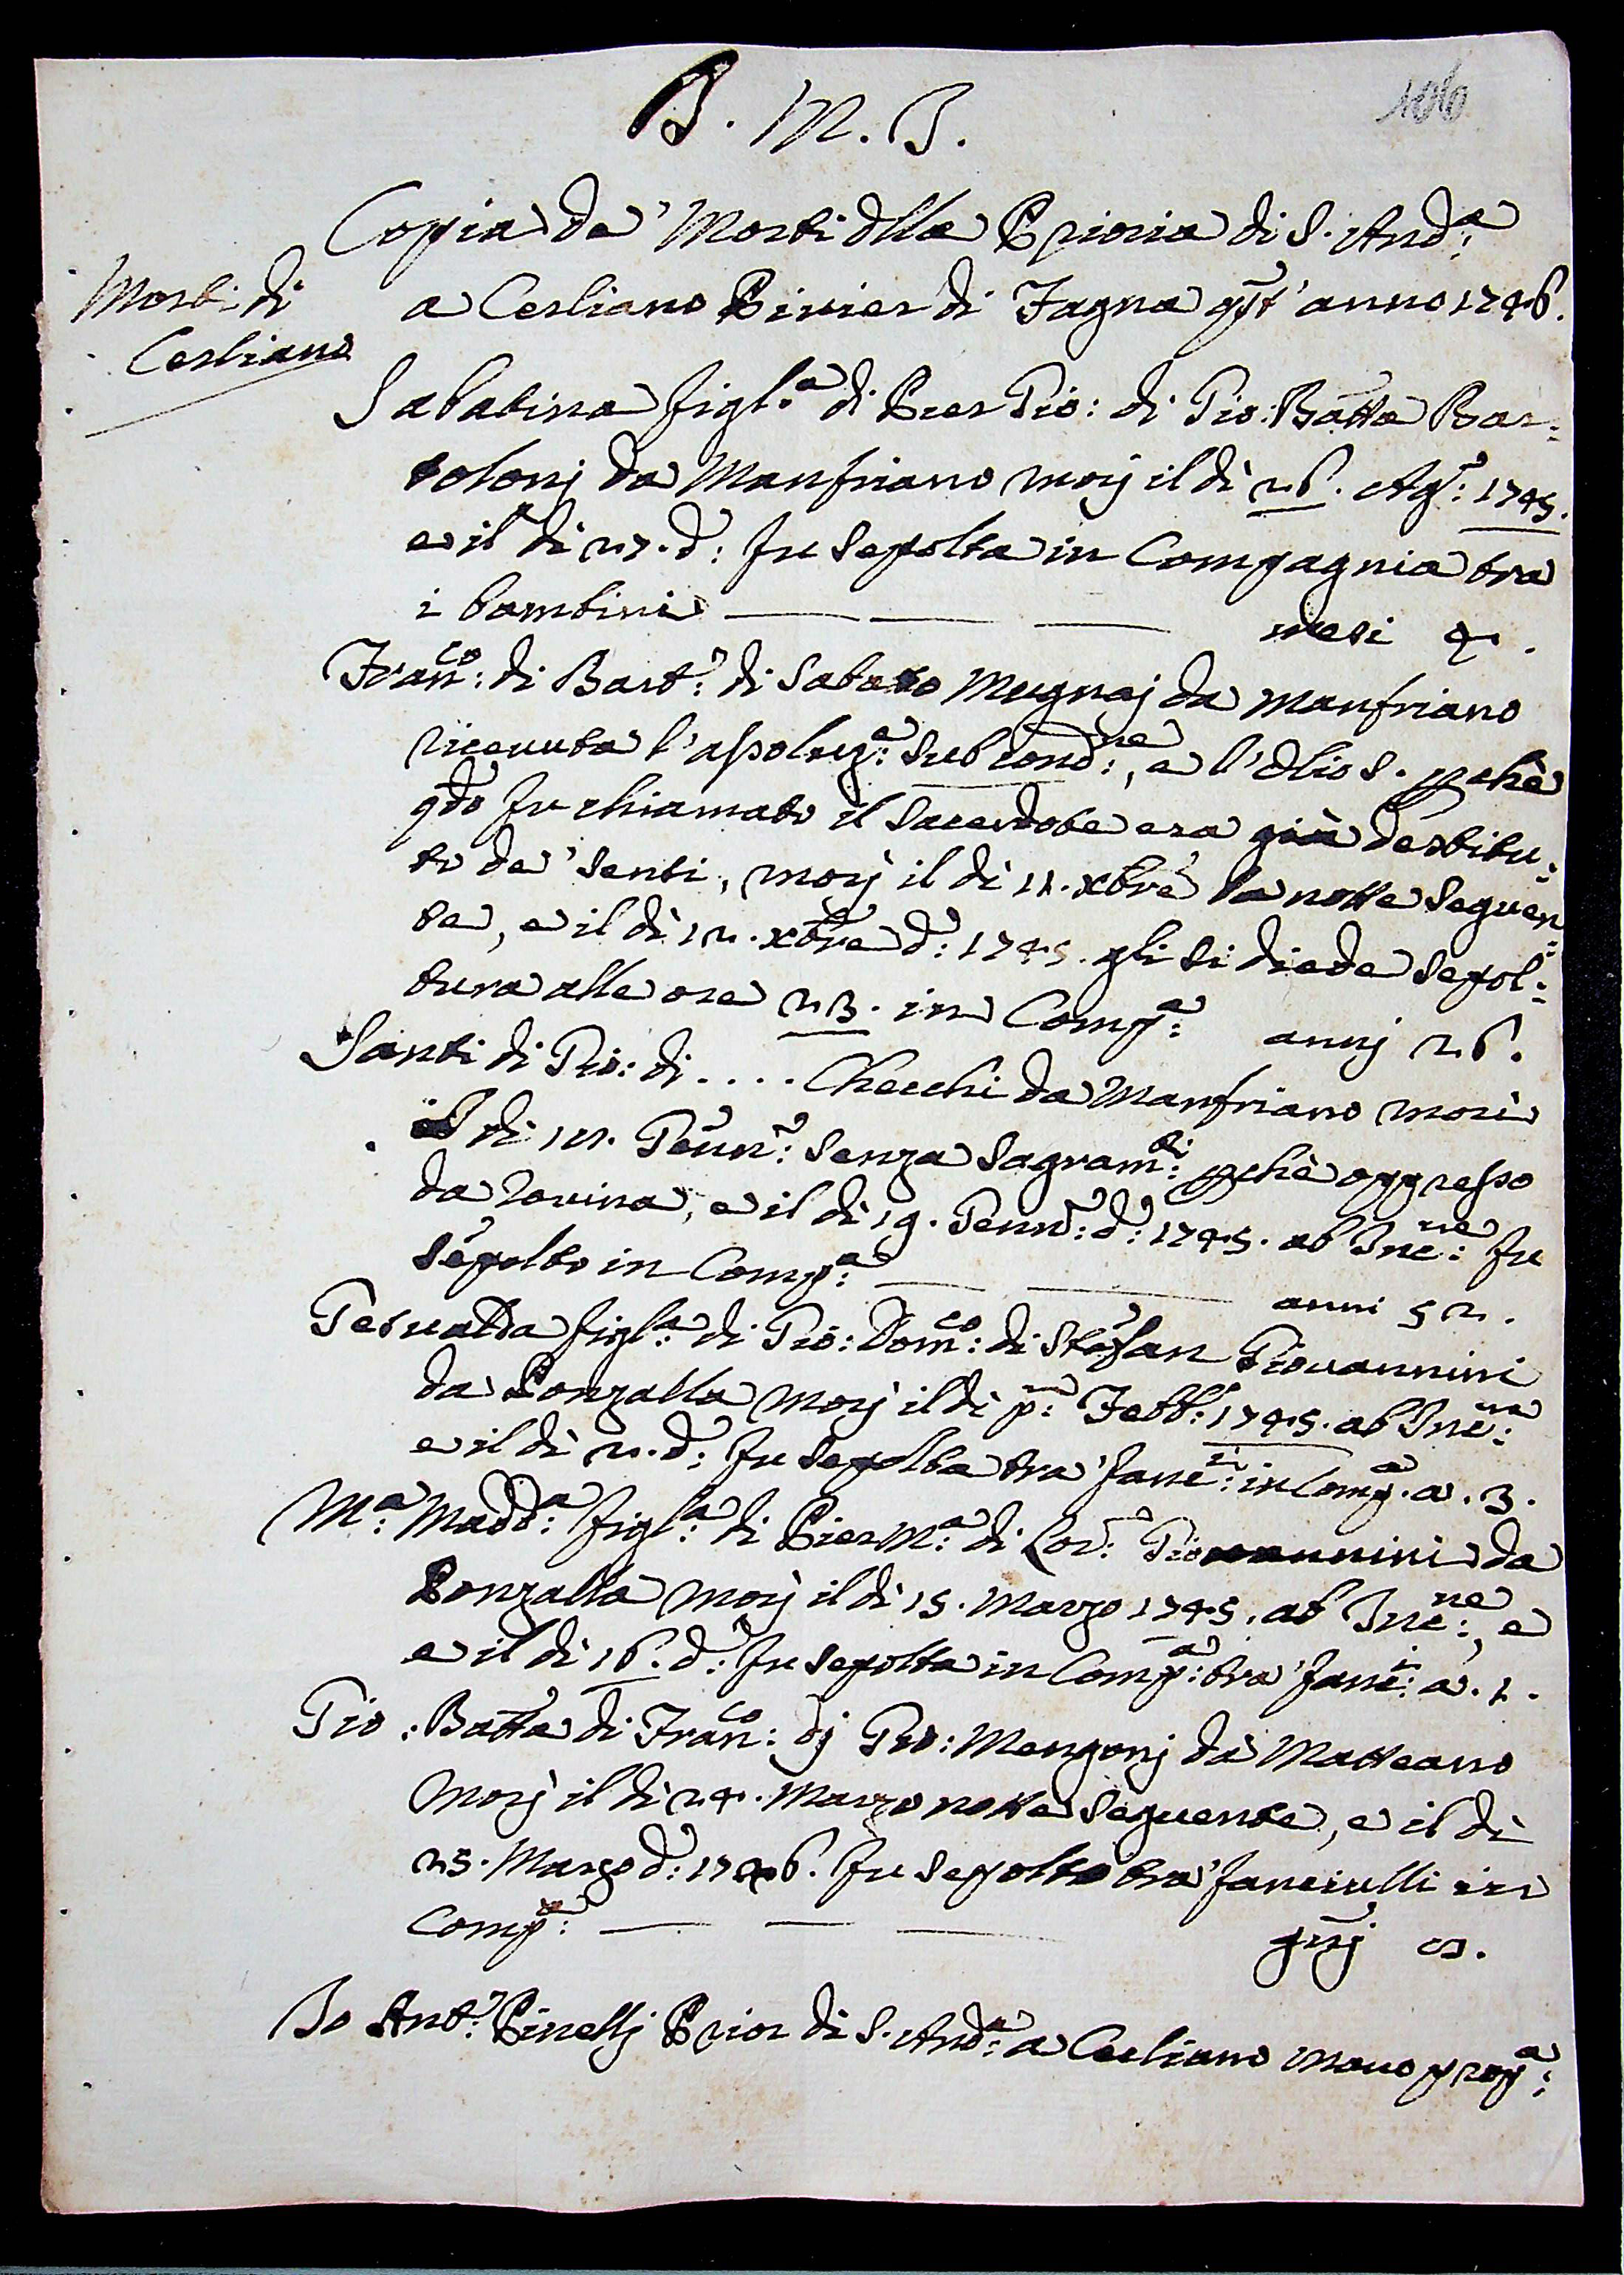 J. M. J.
106
Copia de' Morti dlla Prioria di S. And:ᵃ
Morti di
Cerliano
a Cerliano Pivier di Fagna qst' anno 1746.
Sabatina figl:ᵃ di Pier Gio: di Gio: Batta Bar:
tolonj da Manfriano morj il dì 26. Ag:ᵒ 1745.
e il dì 27. d:ᵒ fu sepolta in Compagnia tra
i bambini mesi 4.
Fran:ᶜᵒ di Bart:ᵒ di Sabato Mugnaj da Manfriano
ricevuta l'assoluz:ᵉ sub cond:ⁿᵉ, e l'Olio S. pchè
qdo fu chiamato il Sacerdote era già destitu:
to de' sensi, morj il dì 11. Xbre la notte seguen:
te, e il dì 12. Xbre d:ᵒ 1745. gli si diede sepol:
tura alle ore 23. in Comp:ᵃ annj 26.
Santi di Gio: di .... Checchi da Manfriano morì
il dì 18. Genn:ᵒ senza Sagram:ᵗⁱ pchè oppresso
da rovina, e il dì 19. Genn:ᵒ d:ᵒ 1745. ab Inc:ⁿᵉ fu
sepolto in Comp:ᵃ anni 52.
Gesualda figl:ᵃ di Gio: Dom:ᶜᵒ di Stefan Giovannini
da Ronzalla morj il dì p:ᵒ Febb:ᵒ 1745. ab Inc:ⁿᵉ
e il dì 2. d:ᵒ fu sepolta tra' fanc:ⁱ in Comp.ᵃ a. 3.
M:ᵃ Madd:ᵃ figl:ᵃ di Pier M:ᵃ di Lor:ᵒ Giovannini da
Ronzalla morj il dì 15. Marzo 1745. ab Inc:ⁿᵉ, e
e il dì 16. d:ᵒ fu sepolta in Comp:ᵃ tra' fanc:ⁱ a. 1.
Gio: Batta di Fran:ᶜᵒ dj Gio: Mengonj da Matteano
morj il dì 24. Marzo notte seguente, e il dì
25. Marzo d:ᵒ 1746. fu sepolto tra' fanciulli in
Comp:ᵃ gnj 8.
Io Ant:ᵒ Pinellj Prior di S. And:ᵃ a Cerliano mano prop:ᵃ